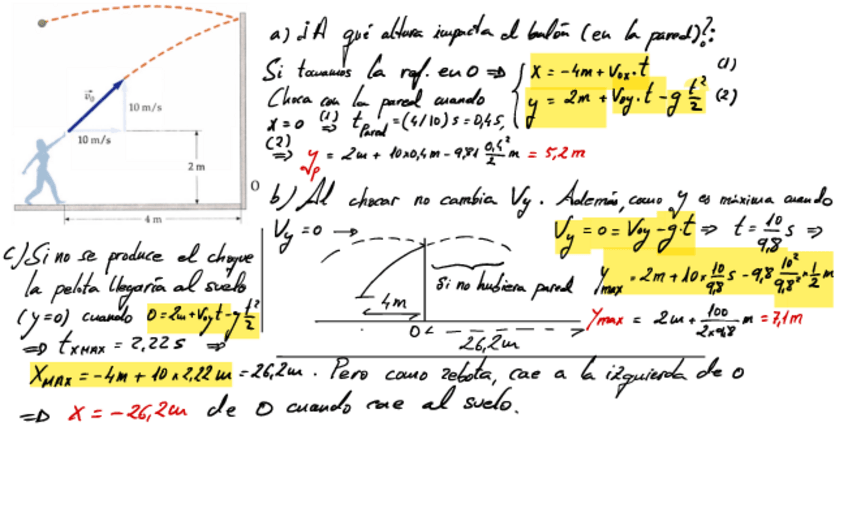 10 m/s
v₀
10 m/s
2 m
4 m
O
a) ¿A qué altura impacta el balón (en la pared)?:
Si tomamos la ref. en O ⇒ { x = -4m + Vox·t (1)
y = 2m + Voy·t - g t²/2 (2)
Choca con la pared cuando
x = 0 (1)⇒ tPared = (4/10) s = 0,4 s,
(2)⇒ yp = 2m + 10x0,4m - 9,81 0,4²/2 m = 5,2 m
b) Al chocar no cambia Vy. Además, como y es máxima cuando
Vy = 0 → Vy = 0 = Voy - g·t ⇒ t = 10/9,8 s ⇒
Ymax = 2m + 10x 10/9,8 s - 9,8 10²/9,8² x 1/2 m
Ymax = 2m + 100/2x9,8 m = 7,1m
Si no hubiera pared
4m
O
26,2m
c) Si no se produce el choque
la pelota llegaría al suelo
(y=0) cuando 0 = 2m + Voyt - g t²/2
⇒ tXMAX = 2,22 s ⇒
XMAX = -4m + 10 x 2,22 m = 26,2m. Pero como rebota, cae a la izquierda de O
⇒ X = -26,2m de O cuando cae al suelo.